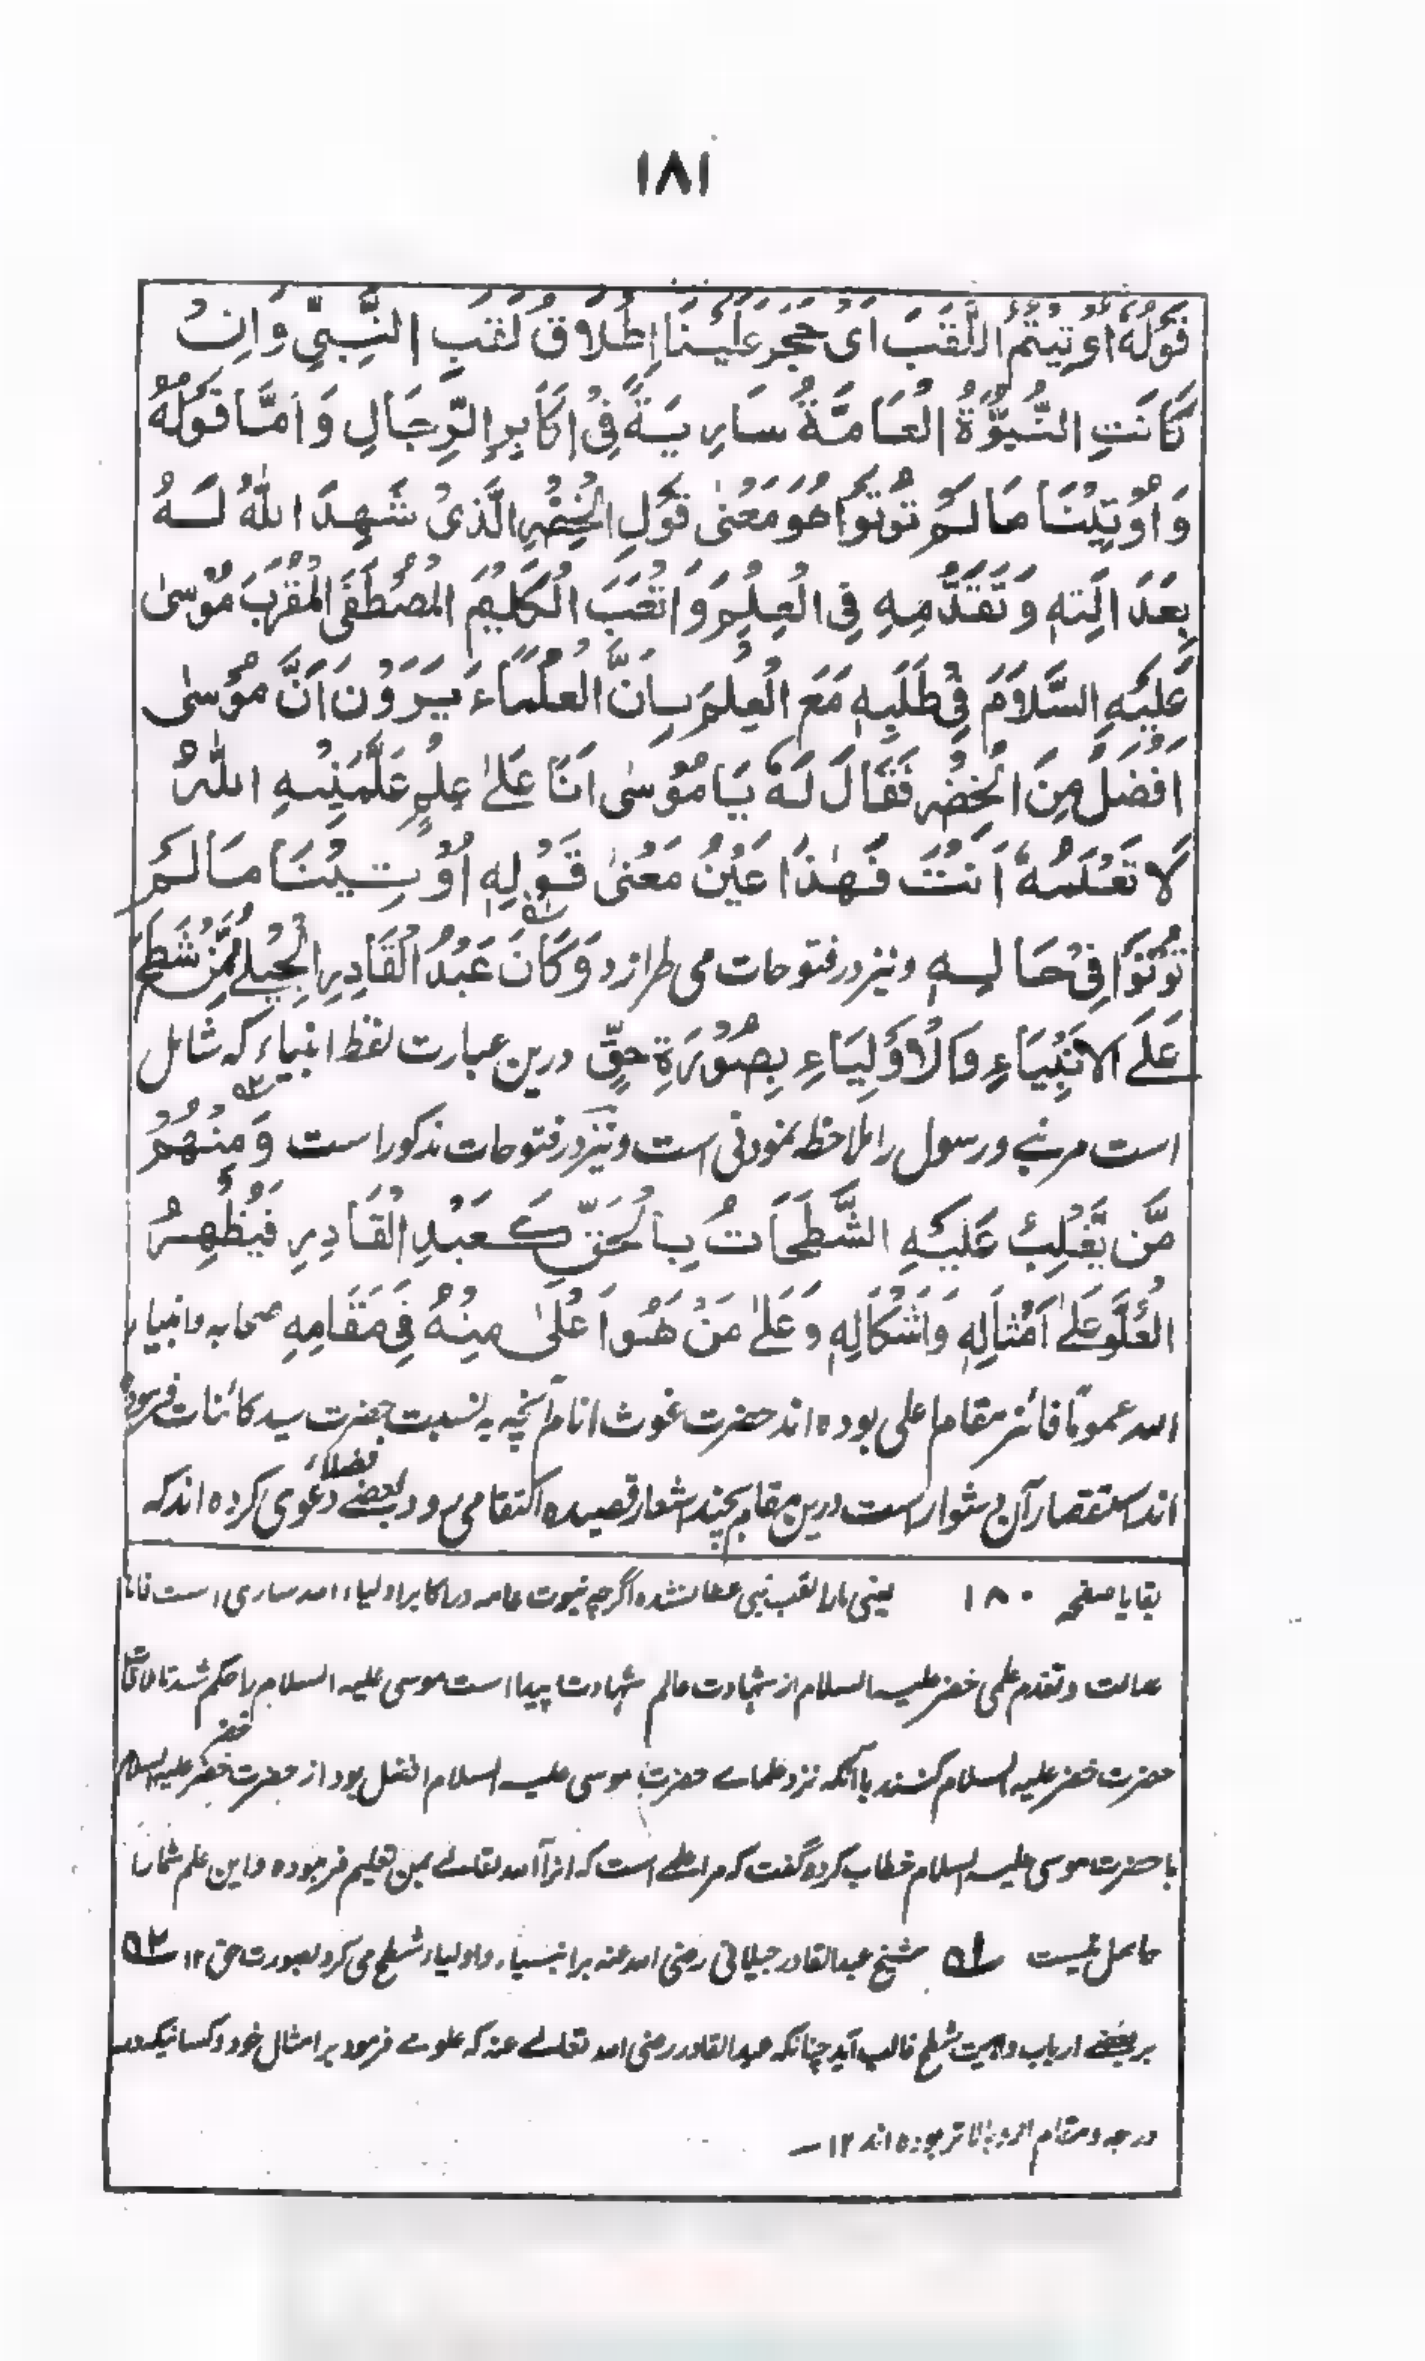 ۱۸۱
قَوْلُهٗ اُوْتِیْتُمُ اللَّقَبَ اَیْ حُجِرَ عَلَیْنَا اِطْلَاقُ لَقَبِ النَّبِیِّ وَاِنْ
کَانَتِ النُّبُوَّۃُ الْعَامَّۃُ سَارِیَۃً فِیْ اَکَابِرِ الرِّجَالِ وَاَمَّا قَوْلُهٗ
وَاُوْتِیْنَا مَا لَمْ تُوْتَوْا هُوَ مَعْنٰی قَوْلِ الْخِضْرِ الَّذِیْ شَهِدَ اللّٰهُ لَهٗ
بِعَدَالَتِهٖ وَتَقَدُّمِهٖ فِی الْعِلْمِ وَاَتْعَبَ الْکَلِیْمَ الْمُصْطَفَی الْمُقَرَّبَ مُوْسٰی
عَلَیْهِ السَّلَامَ فِیْ طَلَبِهٖ مَعَ الْعِلْمِ بِاَنَّ الْعُلَمَاءَ یَرَوْنَ اَنَّ مُوْسٰی
اَفْضَلُ مِنَ الْخِضْرِ فَقَالَ لَهٗ یَا مُوْسٰی اَنَا عَلٰی عِلْمٍ عَلَّمَنِیْهِ اللّٰهُ
لَا تَعْلَمُهٗ اَنْتَ فَهٰذَا عَیْنُ مَعْنٰی قَوْلِهٖ اُوْتِیْنَا مَا لَمْ
تُوْتَوْا فِیْ حَالِهٖ ونیز در فتوحات می طرازد وَکَانَ عَبْدُ الْقَادِرِ الْجِیْلِیُّ مِمَّنْ شَطَحَ
عَلَی الْاَنْبِیَاءِ وَالْاَوْلِیَاءِ بِصُوْرَۃِ حَقٍّ درین عبارت لفظ انبیاء کہ شامل
است مر نبی ورسول را ملاحظہ نمودنی است ونیز در فتوحات مذکور است وَمِنْهُمْ
مَّنْ یَّغْلِبُ عَلَیْهِ الشَّطَحَاتُ بِالْحَقِّ کَعَبْدِ الْقَادِرِ فَیُظْهِرُ
الْعُلُوَّ عَلٰی اَمْثَالِهٖ وَاَشْکَالِهٖ وَعَلٰی مَنْ هُوَ اَعْلٰی مِنْهُ فِیْ مَقَامِهٖ صحابہ وانبیاء
اللہ عموماً فائز مقام اعلی بودہ اند حضرت غوث انام آنچہ بہ نسبت حضرت سید کائنات فرمودہ
اند استقصار آن دشوار است درین مقام بچند اشعار قصیدہ اکتفا می رود بعضے فضلاء دعوی کردہ اند کہ
بقایا صفحہ ۱۸۰ یعنی مارا لقب نبی عطا نشدہ اگرچہ نبوت عامہ در اکابر اولیاء اللہ ساری است
عدالت وتقدم علمی خضر علیہ السلام از شہادت عالم شہادت پیدا است موسی علیہ السلام را حکم شد تا ملاقات
حضرت خضر علیہ السلام کنند باآنکہ نزد علماے حضرت موسی علیہ السلام افضل بود از حضرت خضر علیہ السلام خضر
با حضرت موسی علیہ السلام خطاب کردہ گفت کہ مرا علمے است کہ انرا اللہ تعالے بمن تعلیم فرمودہ واین علم شمارا
حاصل نیست ۵۱ شیخ عبدالقادر جیلانی رضی اللہ عنہ بر انبیاء واولیاء شطح می کرد بصورت حق ۱۲ ۵۲
بر بعضے ارباب شطح غالب آید چنانکہ عبدالقادر رضی اللہ تعالے عنہ کہ علوے فرمود بر امثال خود وکسانیکہ در
درجہ ومقام ازو بالاتر بودہ اند ۱۲